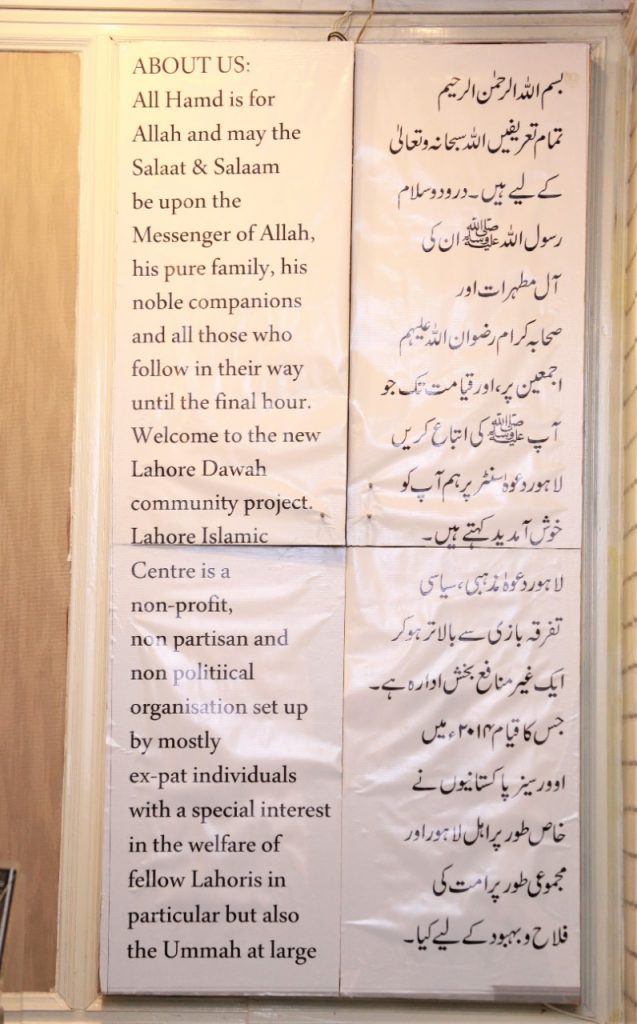 ABOUT US:
All Hamd is for
Allah and may the
Salaat & Salaam
be upon the
Messenger of Allah,
his pure family, his
noble companions
and all those who
follow in their way
until the final hour.
Welcome to the new
Lahore Dawah
community project.
Lahore Islamic
Centre is a
non-profit,
non partisan and
non politiical
organisation set up
by mostly
ex-pat individuals
with a special interest
in the welfare of
fellow Lahoris in
particular but also
the Ummah at large
بسم اللہ الرحمٰن الرحیم
تمام تعریفیں اللہ سبحانہ وتعالیٰ
کے لیے ہیں۔ درود و سلام
رسول اللہ ﷺ ان کی
آل مطہرات اور
صحابہ کرام رضوان اللہ علیہم
اجمعین پر، اور قیامت تک جو
آپ ﷺ کی اتباع کریں
لاہور دعوۃ سنٹر پر ہم آپ کو
خوش آمدید کہتے ہیں۔
لاہور دعوۃ مذہبی، سیاسی
تفرقہ بازی سے بالاتر ہو کر
ایک غیر منافع بخش ادارہ ہے۔
جس کا قیام ۲۰۱۴ء میں
اوورسیز پاکستانیوں نے
خاص طور پر اہل لاہور اور
مجموعی طور پر امت کی
فلاح و بہبود کے لیے کیا۔